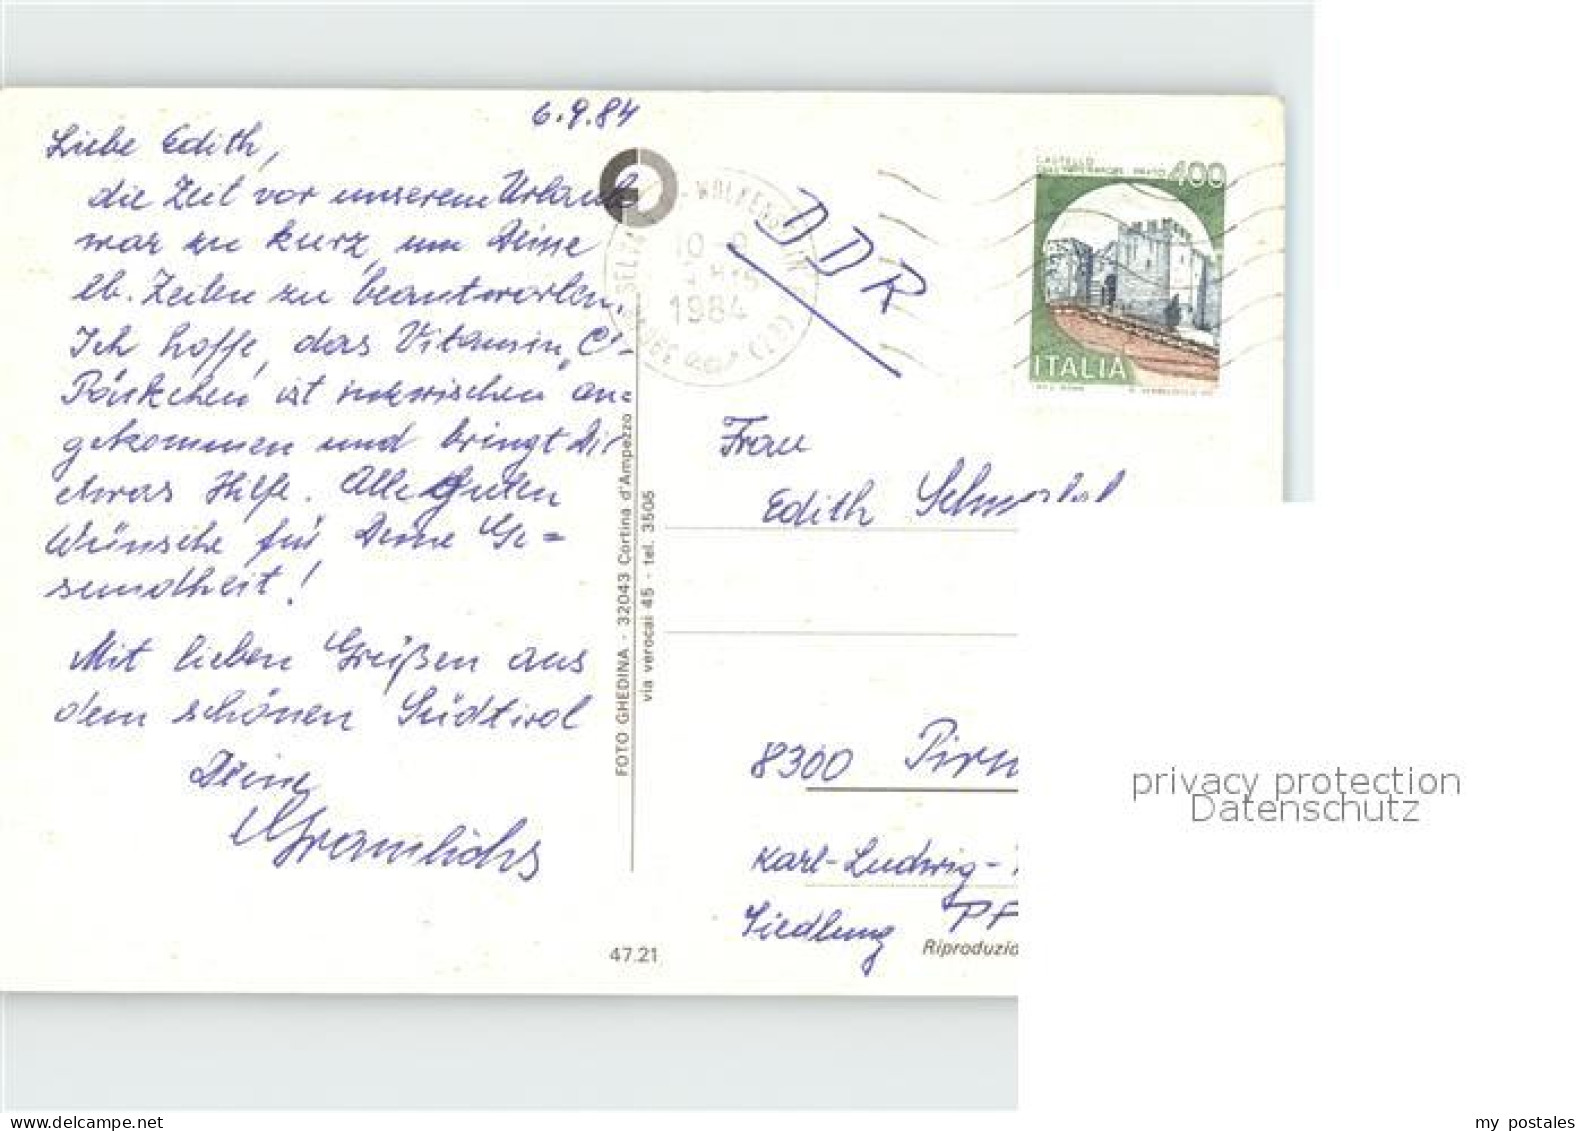 6.9.84
Liebe Edith,
die Zeit vor unserem Urlaub
war zu kurz, um Deine
lb. Zeilen zu beantworten.
Ich hoffe, das Vitamin „C"-
Päckchen ist inzwischen an=
gekommen und bringt Dir
etwas Hilfe. Alle Guten
Wünsche für Deine Ge=
sundheit!
Mit lieben Grüßen aus
dem schönen Südtirol
Deine
Gramlichs
47.21
FOTO GHEDINA - 32043 Cortina d'Ampezzo
via verocai 45 - tel. 3506
10.9
1984
(BZ)
DDR
CASTELLO
DELL'IMPERATORE - PRATO 400
ITALIA
Frau
Edith
8300 Pirn
Karl-Ludwig-
Siedlung PF
Riproduzio
privacy protection
Datenschutz
my postales